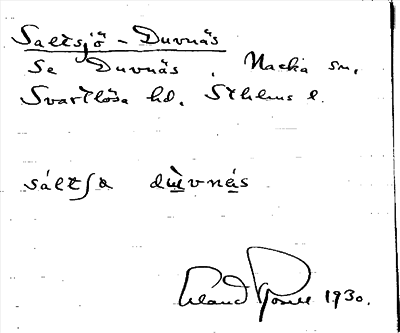 Saltsjö-Duvnäs
Se Duvnäs, Nacka sn,
Svartlösa hd, Sthlms l.
sáltʃɷ dɯ̀vnés
Erland Rosell 1930.